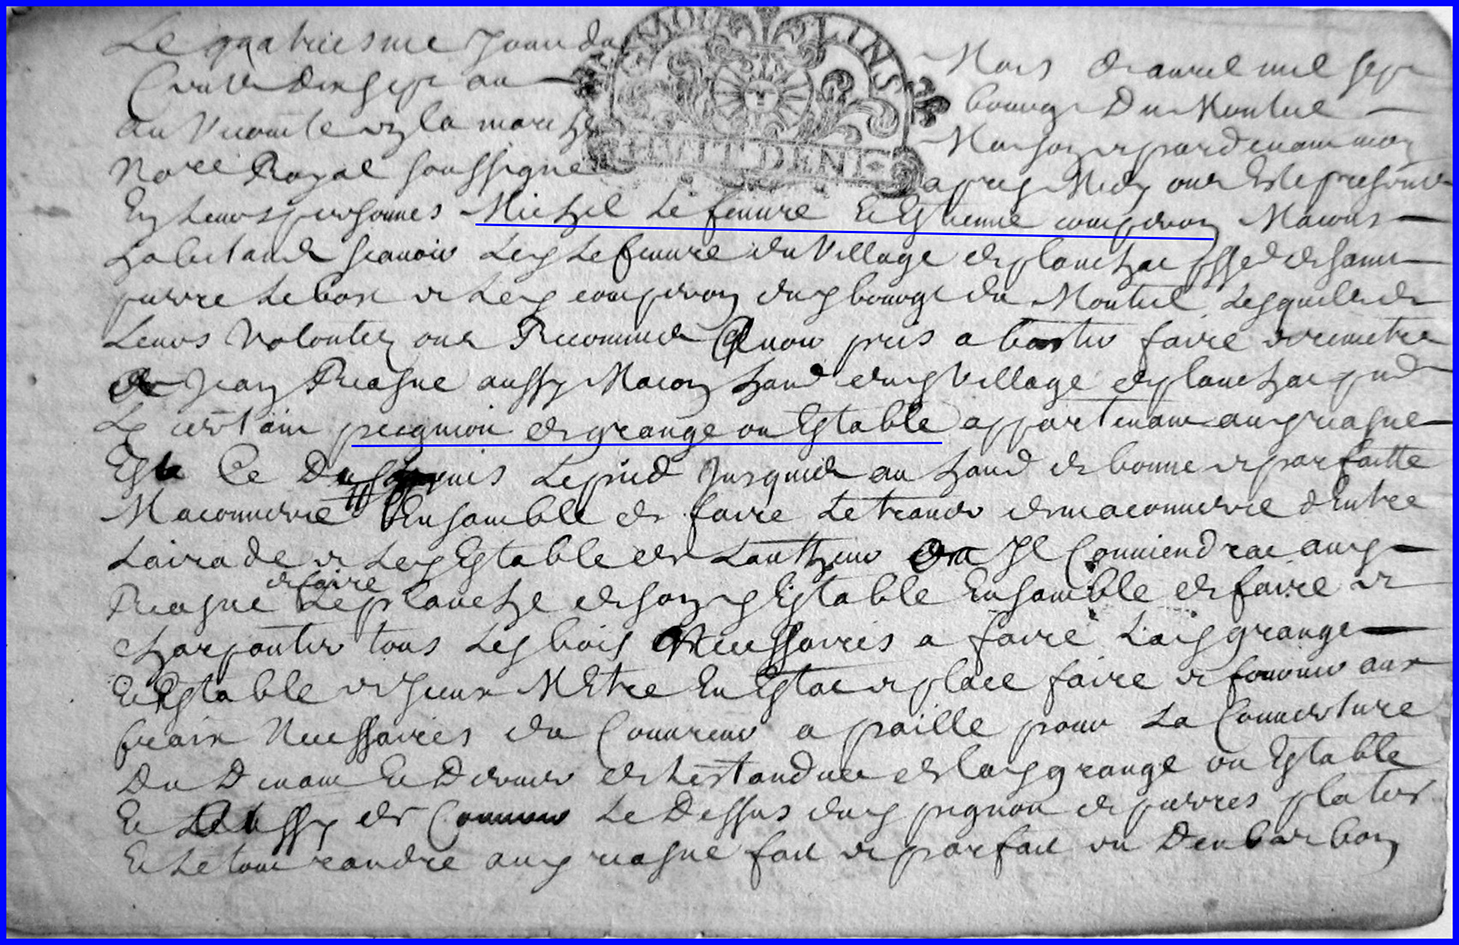 Le quatriesme Jour du Mois d'avril mil sept
Cents dix sept au bourg Du Monteil
au Vicomté et la marche Maison et pardevant moy
No.re Royal soussigné apres Midy ont Esté presents
MOULINS
HUIT DENI
En leurs personnes Michel Lefeuvre Et Estienne couperon Macons
habitants scavoir Led Lefeuvre du Village de planchat psse de saint
pierre Le bost et Led couperon dud bourg du Monteil Lesquels de
Leurs Volontez ont Recounnu avoir pris a bastir faire et remettre
de Jean Priasne aussy Macon hant dud Village de planchat pnt
Le certain piegnion de grange ou Estable appartenant aud priasne
Est Ce Depuis Le pied Jusques au haud de bonne et parfaitte
Maconnerie Ensamble de faire Le travers de maconnerie d'Entre
Lairade et Led Estable de Lautheur Il Conviendrat aud
Priasne et faire Le planche de son d Estable Ensamble de faire et
charpenter tous Les bois Necessaires a faire Lad grange
Et Estable et Iceux Mettre En Estat et place faire et fournir aux
fraix Necessaires du Couvreur a paille pour La Couverture
Du Devant Et Derrier de Lestandue de lad grange ou Estable
Et Aussy de Couvrir Le Dessus dud pignon de pierres plattes
Et Le tout randre aud priasne fait et parfait